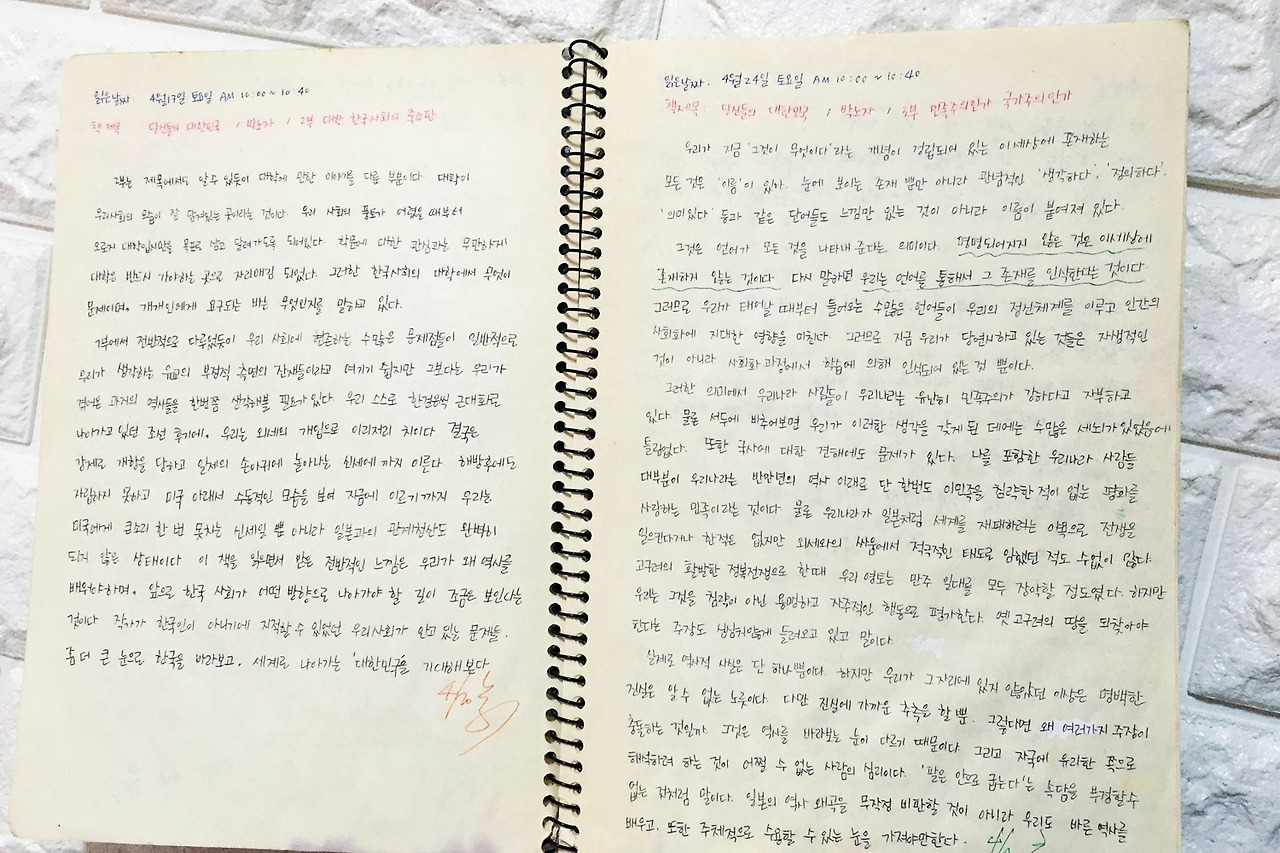 읽은날짜 4월17일 토요일 AM 10:00 ~ 10:40
책제목 : 당신들의 대한민국 / 박노자 / 2부 대학 한국사회의 축소판
2부는 제목에서도 알 수 있듯이 대학에 관한 이야기를 다룬 부분이다. 대학이
우리사회의 모습이 잘 담겨있는 곳이라는 것이다. 우리 사회의 풍토가 어렸을 때부터
오로지 대학입시만을 목표로 삼고 달려가도록 되어있다. 학문에 대한 관심과는 무관하게
대학은 반드시 가야하는 곳으로 자리매김 되었다. 그러한 한국사회의 대학에서 무엇이
문제이며, 개개인에게 요구되는 바는 무엇인지를 말하고 있다.
1부에서 전반적으로 다루었듯이 우리 사회에 현존하는 수많은 문제점들이 일반적으로
우리가 생각하는 유교의 부정적 측면의 잔재들이라고 여기기 쉽지만 그보다는 우리가
겪어온 과거의 역사들을 한번쯤 생각해볼 필요가 있다. 우리 스스로 한걸음씩 근대화로
나아가고 있던 조선 후기에, 우리는 외세의 개입으로 이리저리 치이다 결국은
강제로 개항을 당하고 일제의 손아귀에 놀아나는 신세에 까지 이른다. 해방후에도
자립하지 못하고 미국 아래서 수동적인 모습을 보여 지금에 이르기까지 우리는
미국에게 큰소리 한 번 못치는 신세일 뿐 아니라 일본과의 관계청산도 완벽히
되지 않은 상태이다. 이 책을 읽으면서 받은 전반적인 느낌은 우리가 왜 역사를
배워야하며, 앞으로 한국 사회가 어떤 방향으로 나아가야 할 길이 조금은 보인다는
것이다. 작자가 한국인이 아니기에 지적할 수 있었던 우리사회가 안고 있는 문제들.
좀 더 큰 눈으로 한국을 바라보고, 세계로 나아가는 '대한민국'을 기대해 본다.
4/20
읽은날짜. 4월 24일 토요일 AM 10:00 ~ 10:40
책제목 : 당신들의 대한민국 / 박노자 / 3부 민족주의인가 국가주의인가
우리가 지금 '그것이 무엇이다'라는 개념이 정립되어 있는 이세상에 존재하는
모든 것은 '이름'이 있다. 눈에 보이는 존재 뿐만 아니라 관념적인 '생각하다', '정의하다',
'의미있다' 등과 같은 단어들도 느낌만 있는 것이 아니라 이름이 붙여져 있다.
그것은 언어가 모든 것을 나타내 준다는 의미이다. 명명되어지지 않은 것은 이세상에
존재하지 않는 것이다. 다시 말하면 우리는 언어를 통해서 그 존재를 인식한다는 것이다
그러므로 우리가 태어날 때부터 들어오는 수많은 언어들이 우리의 정신체계를 이루고 인간의
사회화에 지대한 영향을 미친다. 그러므로 지금 우리가 당연시하고 있는 것들은 자생적인
것이 아니라 사회화 과정에서 학습에 의해 인식되어 있는 것 뿐이다.
그러한 의미에서 우리나라 사람들이 우리나라는 유난히 민족주의가 강하다고 자부하고
있다. 물론 서두에 비추어보면 우리가 이러한 생각을 갖게 된 데에는 수많은 세뇌가 있었음에
틀림없다. 또한 국사에 대한 견해에도 문제가 있다. 나를 포함한 우리나라 사람들
대부분이 우리나라는 반만년의 역사 이래로 단 한번도 이민족을 침략한 적이 없는 평화를
사랑하는 민족이라는 것이다. 물론 우리나라가 일본처럼 세계를 재패하려는 야욕으로 전쟁을
일으킨다거나 한적은 없지만 외세와의 싸움에서 적극적인 태도로 임했던 적도 수없이 많다.
고구려의 활발한 정복전쟁으로 한때 우리 영토는 만주 일대를 모두 장악할 정도였다. 하지만
우리는 그것을 침략이 아닌 용맹하고 자주적인 행동으로 평가한다. 옛 고구려의 땅을 되찾아야
한다는 주장도 심심치않게 들려오고 있고 말이다.
실제로 역사적 사실은 단 하나뿐이다. 하지만 우리가 그 자리에 있지 않았던 이상은 명백한
진실은 알 수 없는 노릇이다. 다만 진실에 가까운 추측을 할 뿐. 그렇다면 왜 여러가지 주장이
충돌하는 것일까. 그것은 역사를 바라보는 눈이 다르기 때문이다. 그리고 자국에 유리한 쪽으로
해석하려 하는 것이 어쩔 수 없는 사람의 심리이다. '팔은 안으로 굽는다'는 속담을 부정할 수
없는 것처럼 말이다. 일본의 역사 왜곡을 무작정 비판할 것이 아니라 우리도 바른 역사를
배우고, 또한 주체적으로 수용할 수 있는 눈을 가져야만한다.